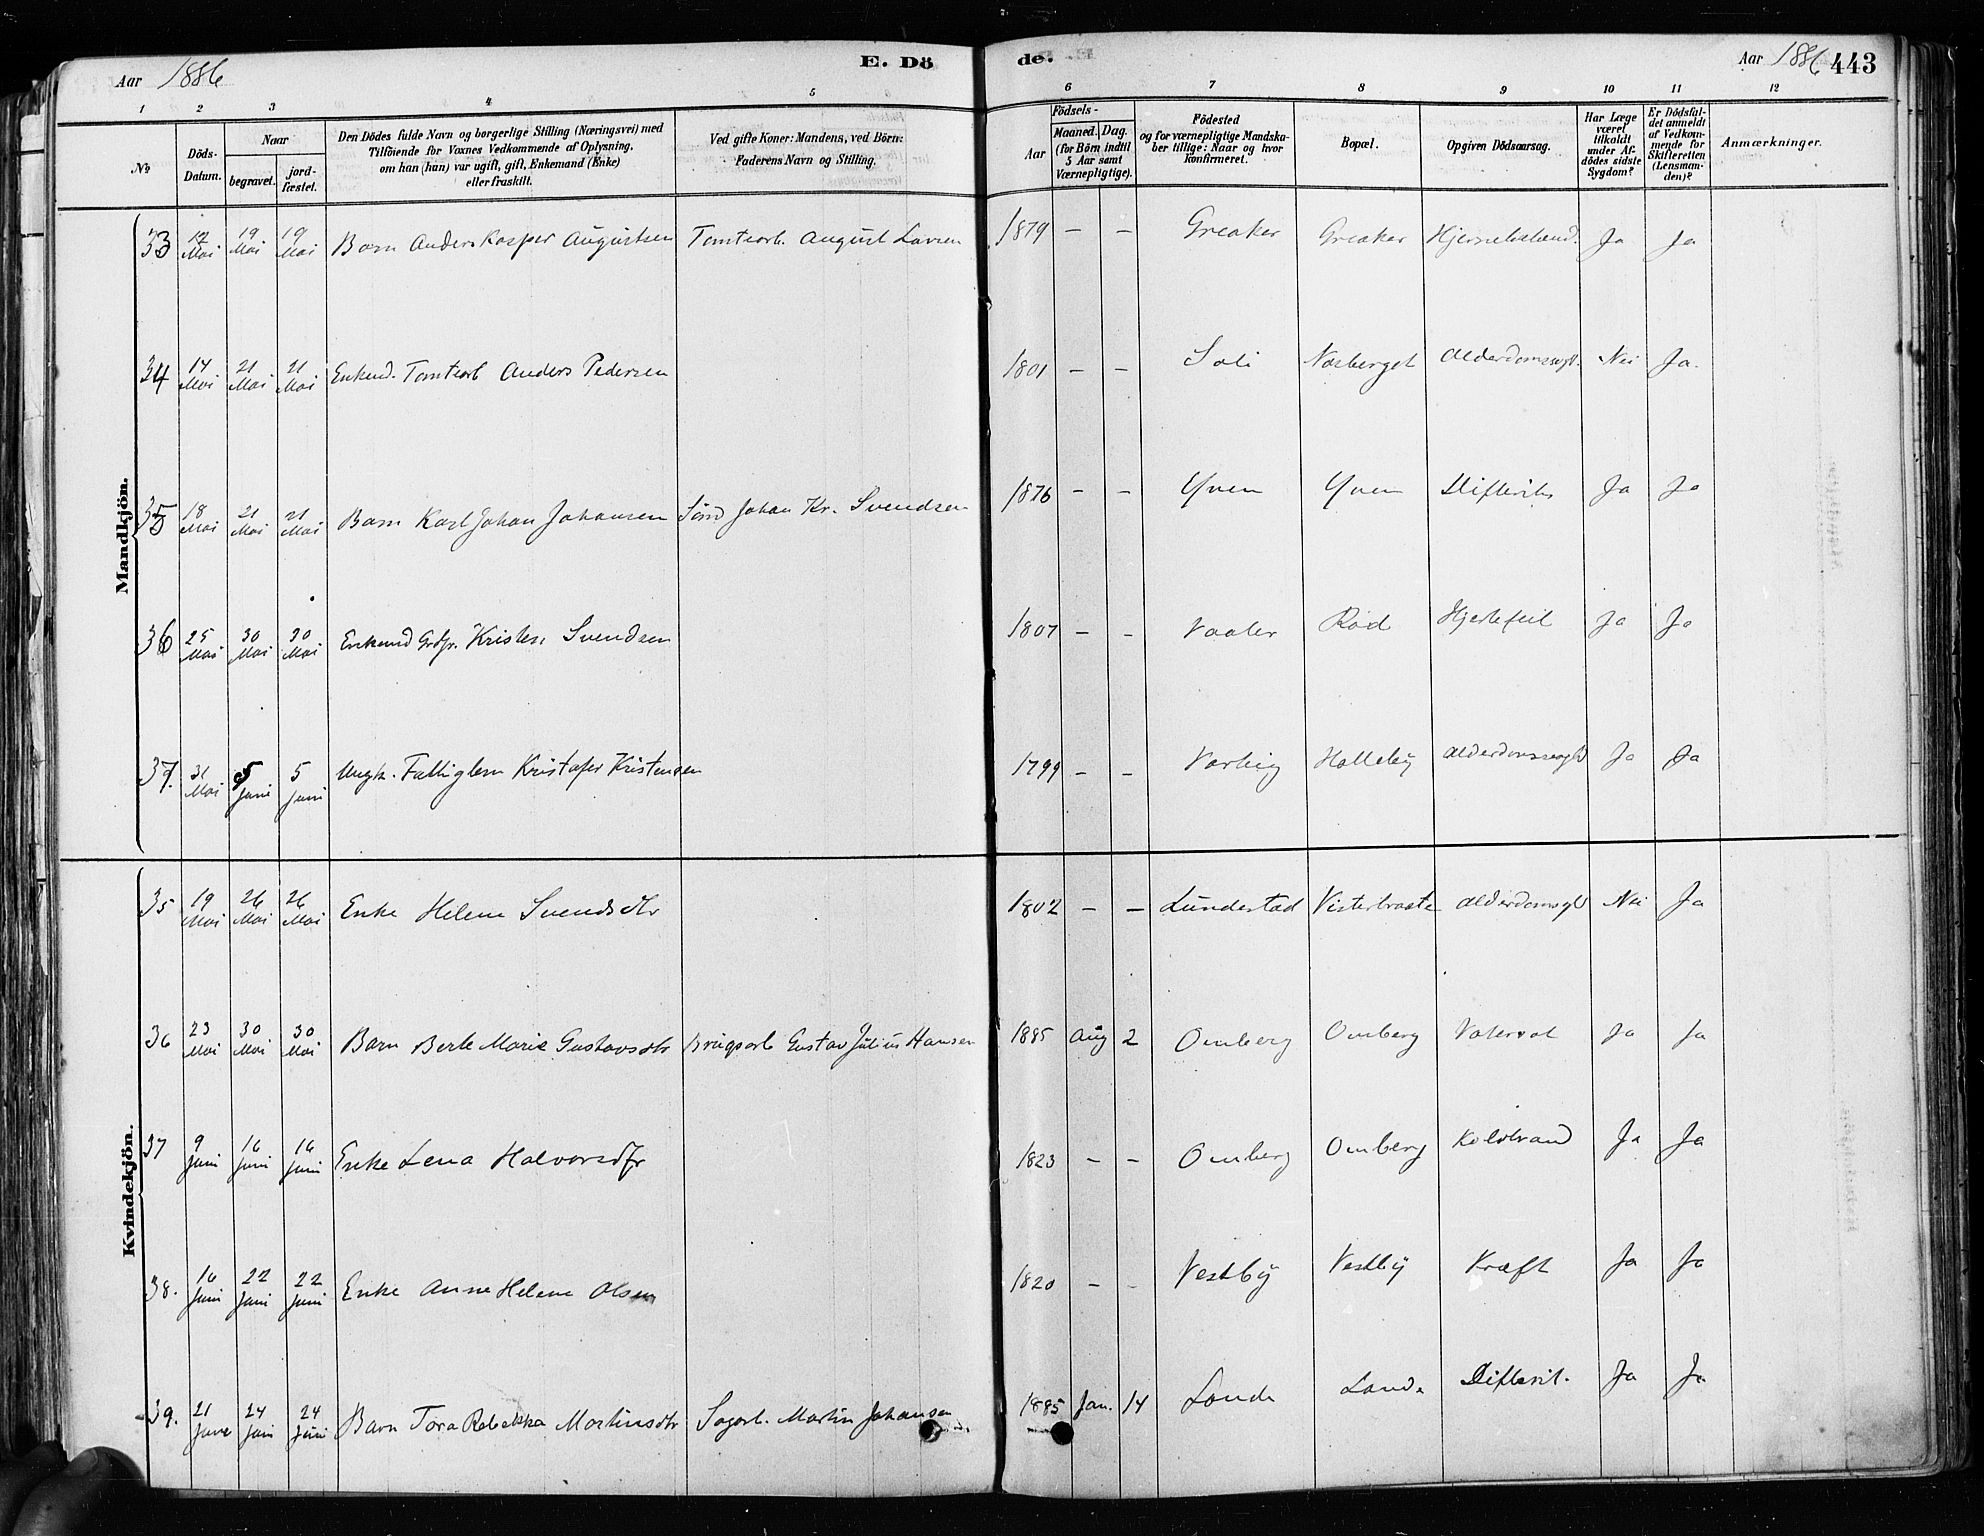 Aar 1886 E. Döde. Aar 1886 443
1 2 3 4 5 6 7 8 9 10 11 12
No
Döds-Datum.
Naar
begravet.
jord-fæstet.
Den Dödes fulde Navn og borgerlige Stilling (Næringsvei) med
Tilföiende for Voxnes Vedkommende af Oplysning,
om han (hun) var ugift, gift, Enkemand (Enke)
eller fraskilt.
Ved gifte Koner: Mandens, ved Börn:
Faderens Navn og Stilling.
Födsels-
Aar
Maaned. Dag.
(for Börn indtil
5 Aar samt
Værnepligtige).
Födested
og for værnepligtige Mandska-
ber tillige: Naar og hvor
konfirmeret.
Bopæl.
Opgiven Dödsaarsag.
Har Læge
været
tilkaldt
under Af-
dödes sidste
Sygdom?
Er Dödsfal-
det anmeldt
af Vedkom-
mende for
Skifteretten
(Lensman-
den)?
Anmærkninger.
Mandkjön.
33 12 Mai 19 Mai 19 Mai Barn Anders Kasper Augustsen Tomtearb. August Larsen 1879 — — Greaker Greaker Hjernebetænd. Ja Ja
34 14 Mai 21 Mai 21 Mai Enkemd. Tomtearb Anders Pedersen 1801 — — Soli Nesberget Alderdomssvgh. Nei Ja.
35 18 Mai 21 Mai 21 Mai Barn Karl Johan Johansen Sömd Johan Kr. Svendsen 1876 — — Yven Yven Difterits Ja Ja
36 25 Mai 30 Mai 30 Mai Enkemd Grdbr. Kristen Svendsen 1807 — — Vaaler Rød Hjertefeil Ja Ja
37. 31 Mai 5 Juni 5 Juni Ungk. Fattiglem Kristofer Kristensen 1799 — — Varteig Halleby Alderdomssvagh Ja Ja
Kvindekjön.
35 19 Mai 26 Mai 26 Mai Enke Helene Svendsdtr 1802 — — Lundestad Visterbraate Alderdomsvgh Nei Ja
36 23 Mai 30 Mai 30 Mai Barn Berte Marie Gustavsdtr Brugsarb Gustav Julius Hansen 1885 Aug 2 Omberg Omberg Vatersot Ja Ja
37 9 Juni 16 Juni 16 Juni Enke Lena Halvorsdtr 1823 — — Omberg Omberg Koldbrand Ja Ja
38. 16 Juni 22 Juni 22 Juni Enke Anne Helene Olsen 1820 — — Vestby Vestby Kræft Ja Ja
39. 21 June 24 Juni 24 Juni Barn Tora Rebekka Martinsdtr Sagarb. Martin Johansen 1885 Jan. 14 Lande Lande Difterit. Ja Ja